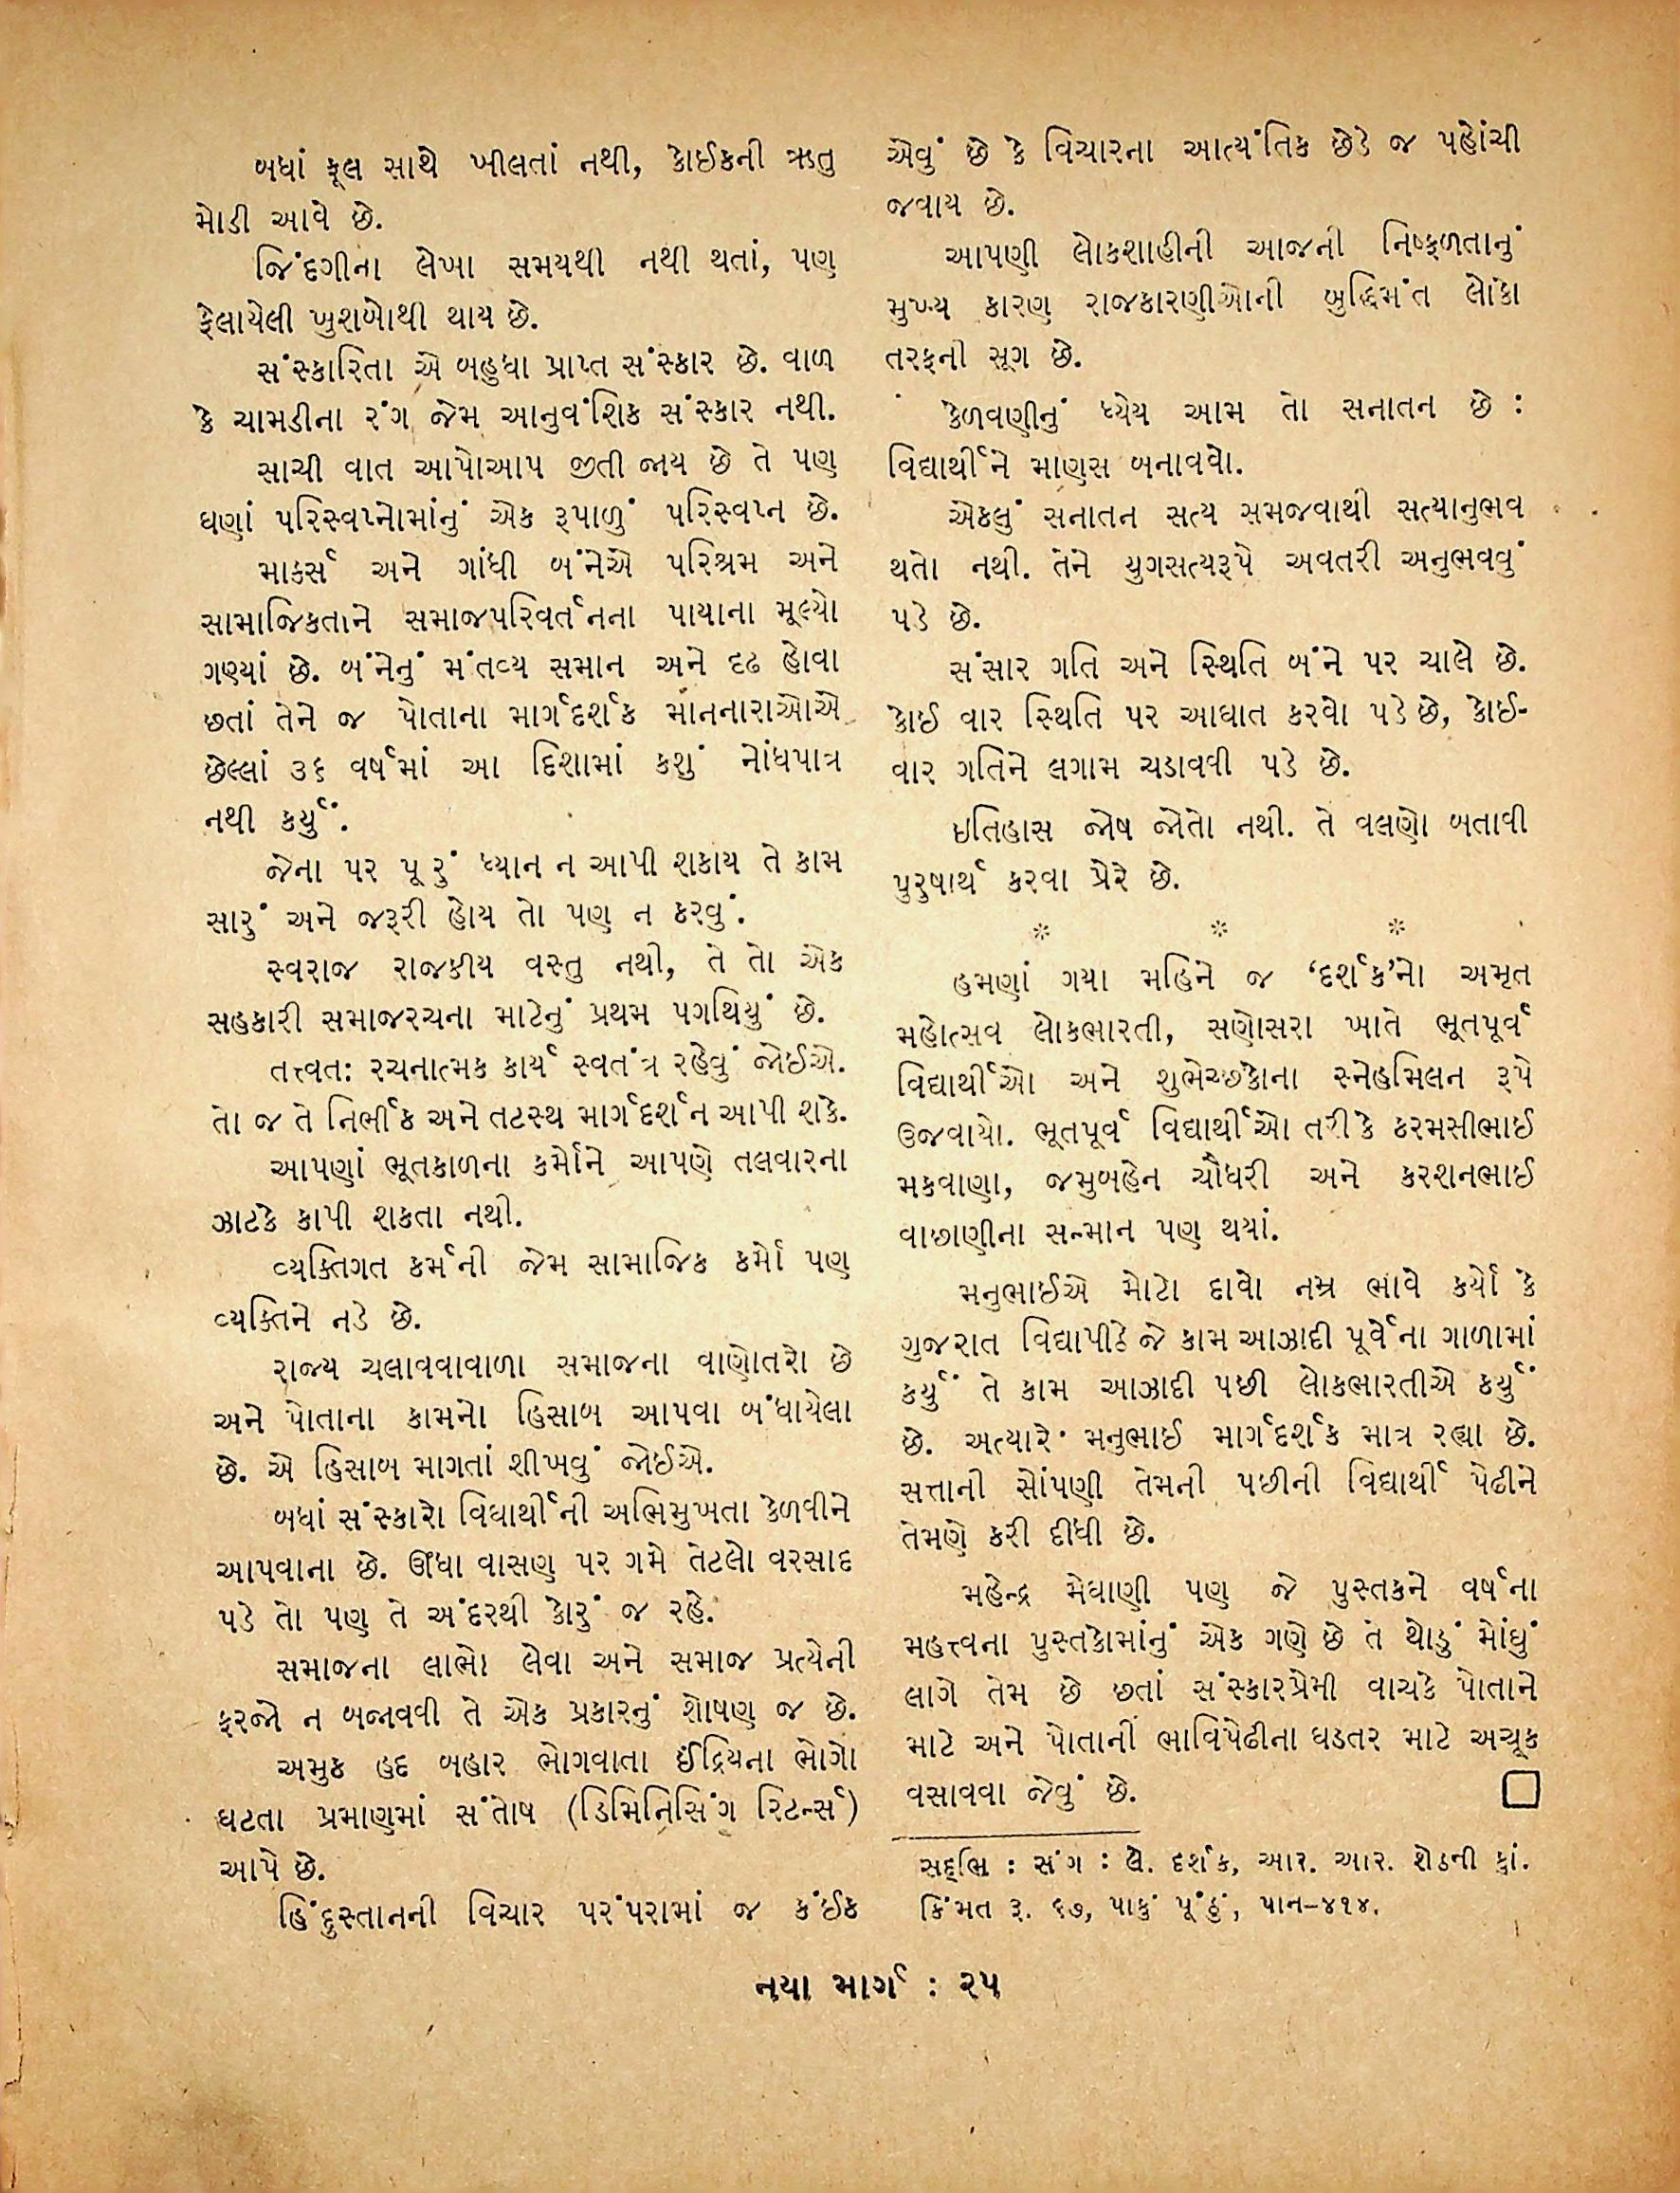 બધાં ફૂલ સાથે ખીલતાં નથી, કોઈકની ઋતુ
મોડી આવે છે.
જિંદગીના લેખા સમયથી નથી થતાં, પણ
ફેલાયેલી ખુશબોથી થાય છે.
સંસ્કારિતા એ બહુધા પ્રાપ્ત સંસ્કાર છે. વાળ
કે ચામડીના રંગ જેમ આનુવંશિક સંસ્કાર નથી.
સાચી વાત આપોઆપ જીતી જાય છે તે પણ
ઘણાં પરિસ્વપ્નોમાંનું એક રૂપાળું પરિસ્વપ્ન છે.
માર્ક્સ અને ગાંધી બંનેએ પરિશ્રમ અને
સામાજિકતાને સમાજપરિવર્તનના પાયાના મૂલ્યો
ગણ્યાં છે. બંનેનું મંતવ્ય સમાન અને દઢ હોવા
છતાં તેને જ પોતાના માર્ગદર્શક માનનારાઓએ
છેલ્લાં ૩૬ વર્ષમાં આ દિશામાં કશું નોંધપાત્ર
નથી કર્યું.
જેના પર પૂરું ધ્યાન ન આપી શકાય તે કામ
સારું અને જરૂરી હોય તો પણ ન કરવું.
સ્વરાજ રાજકીય વસ્તુ નથી, તે તો એક
સહકારી સમાજરચના માટેનું પ્રથમ પગથિયું છે.
તત્ત્વત: રચનાત્મક કાર્ય સ્વતંત્ર રહેવું જોઈએ.
તો જ તે નિર્ભીક અને તટસ્થ માર્ગદર્શન આપી શકે.
આપણાં ભૂતકાળના કર્મોને આપણે તલવારના
ઝાટકે કાપી શકતા નથી.
વ્યક્તિગત કર્મની જેમ સામાજિક કર્મો પણ
વ્યક્તિને નડે છે.
રાજ્ય ચલાવવાવાળા સમાજના વાણોતરો છે
અને પોતાના કામનો હિસાબ આપવા બંધાયેલા
છે. એ હિસાબ માગતાં શીખવું જોઈએ.
બધાં સંસ્કારો વિદ્યાર્થીની અભિમુખતા કેળવીને
આપવાના છે. ઊંધા વાસણ પર ગમે તેટલો વરસાદ
પડે તો પણ તે અંદરથી કોરું જ રહે.
સમાજના લાભો લેવા અને સમાજ પ્રત્યેની
ફરજો ન બજાવવી તે એક પ્રકારનું શોષણ જ છે.
અમુક હદ બહાર ભોગવાતા ઈંદ્રિયના ભોગો
ઘટતા પ્રમાણમાં સંતોષ (ડિમિનિસિંગ રિટર્ન્સ)
આપે છે.
હિંદુસ્તાનની વિચાર પરંપરામાં જ કંઈક
એવું છે કે વિચારના આત્યંતિક છેડે જ પહોંચી
જવાય છે.
આપણી લોકશાહીની આજની નિષ્ફળતાનું
મુખ્ય કારણ રાજકારણીઓની બુદ્ધિમંત લોકો
તરફની સૂગ છે.
કેળવણીનું ધ્યેય આમ તો સનાતન છે :
વિદ્યાર્થીને માણસ બનાવવો.
એકલું સનાતન સત્ય સમજવાથી સત્યાનુભવ
થતો નથી. તેને યુગસત્યરૂપે અવતરી અનુભવવું
પડે છે.
સંસાર ગતિ અને સ્થિતિ બંને પર ચાલે છે.
કોઈ વાર સ્થિતિ પર આઘાત કરવો પડે છે, કોઈ-
વાર ગતિને લગામ ચડાવવી પડે છે.
ઇતિહાસ જોષ જોતો નથી. તે વલણો બતાવી
પુરુષાર્થ કરવા પ્રેરે છે.
* * *
હમણાં ગયા મહિને જ ‘દર્શક’નો અમૃત
મહોત્સવ લોકભારતી, સણોસરા ખાતે ભૂતપૂર્વ
વિદ્યાર્થીઓ અને શુભેચ્છકોના સ્નેહમિલન રૂપે
ઉજવાયો. ભૂતપૂર્વ વિદ્યાર્થીઓ તરીકે કરમસીભાઈ
મકવાણા, જમુબહેન ચૌધરી અને કરશનભાઈ
વાછાણીના સન્માન પણ થયાં.
મનુભાઈએ મોટો દાવો નમ્ર ભાવે કર્યો કે
ગુજરાત વિદ્યાપીઠે જે કામ આઝાદી પૂર્વેના ગાળામાં
કર્યું તે કામ આઝાદી પછી લોકભારતીએ કર્યું
છે. અત્યારે મનુભાઈ માર્ગદર્શક માત્ર રહ્યા છે.
સત્તાની સોંપણી તેમની પછીની વિદ્યાર્થી પેઢીને
તેમણે કરી દીધી છે.
મહેન્દ્ર મેઘાણી પણ જે પુસ્તકને વર્ષના
મહત્ત્વના પુસ્તકોમાંનું એક ગણે છે તે થોડું મોંઘું
લાગે તેમ છે છતાં સંસ્કારપ્રેમી વાચકે પોતાને
માટે અને પોતાની ભાવિપેઢીના ઘડતર માટે અચૂક
વસાવવા જેવું છે.
સદ્ભિ : સંગ : લે. દર્શક, આર. આર. શેઠની કુાં.
કિંમત રૂ. ૬૭, પાકું પૂંઠું, પાન–૪૧૪.
નયા માર્ગ : ૨૫